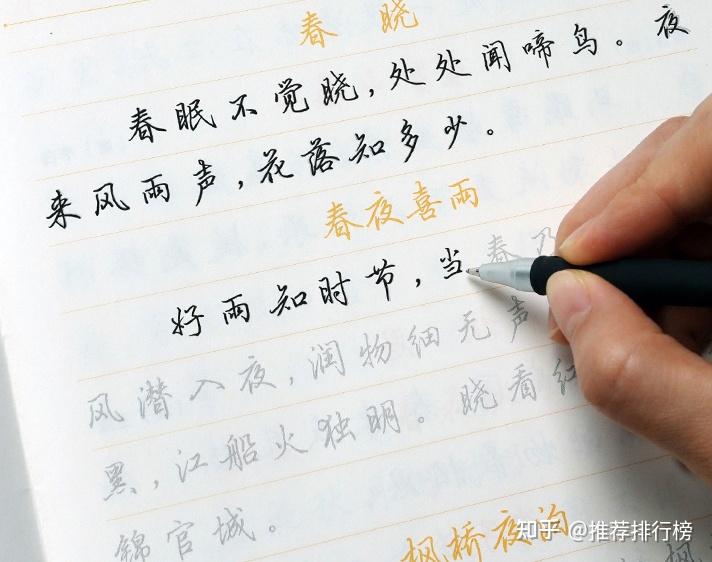 春晓
春眠不觉晓，处处闻啼鸟。夜
来风雨声，花落知多少。
春夜喜雨
好雨知时节，当春乃
风潜入夜，润物细无声
黑，江船火独明。晓看红
锦官城。
枫桥夜泊
知乎 @推荐排行榜